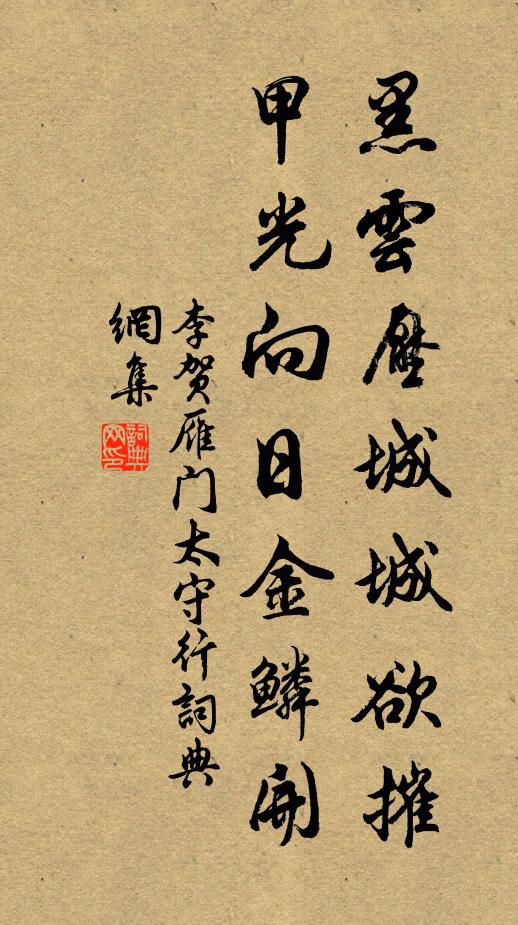 黑雲壓城城欲摧
甲光向日金鱗開
李賀雁门太守行詞典
網集
詞典网印